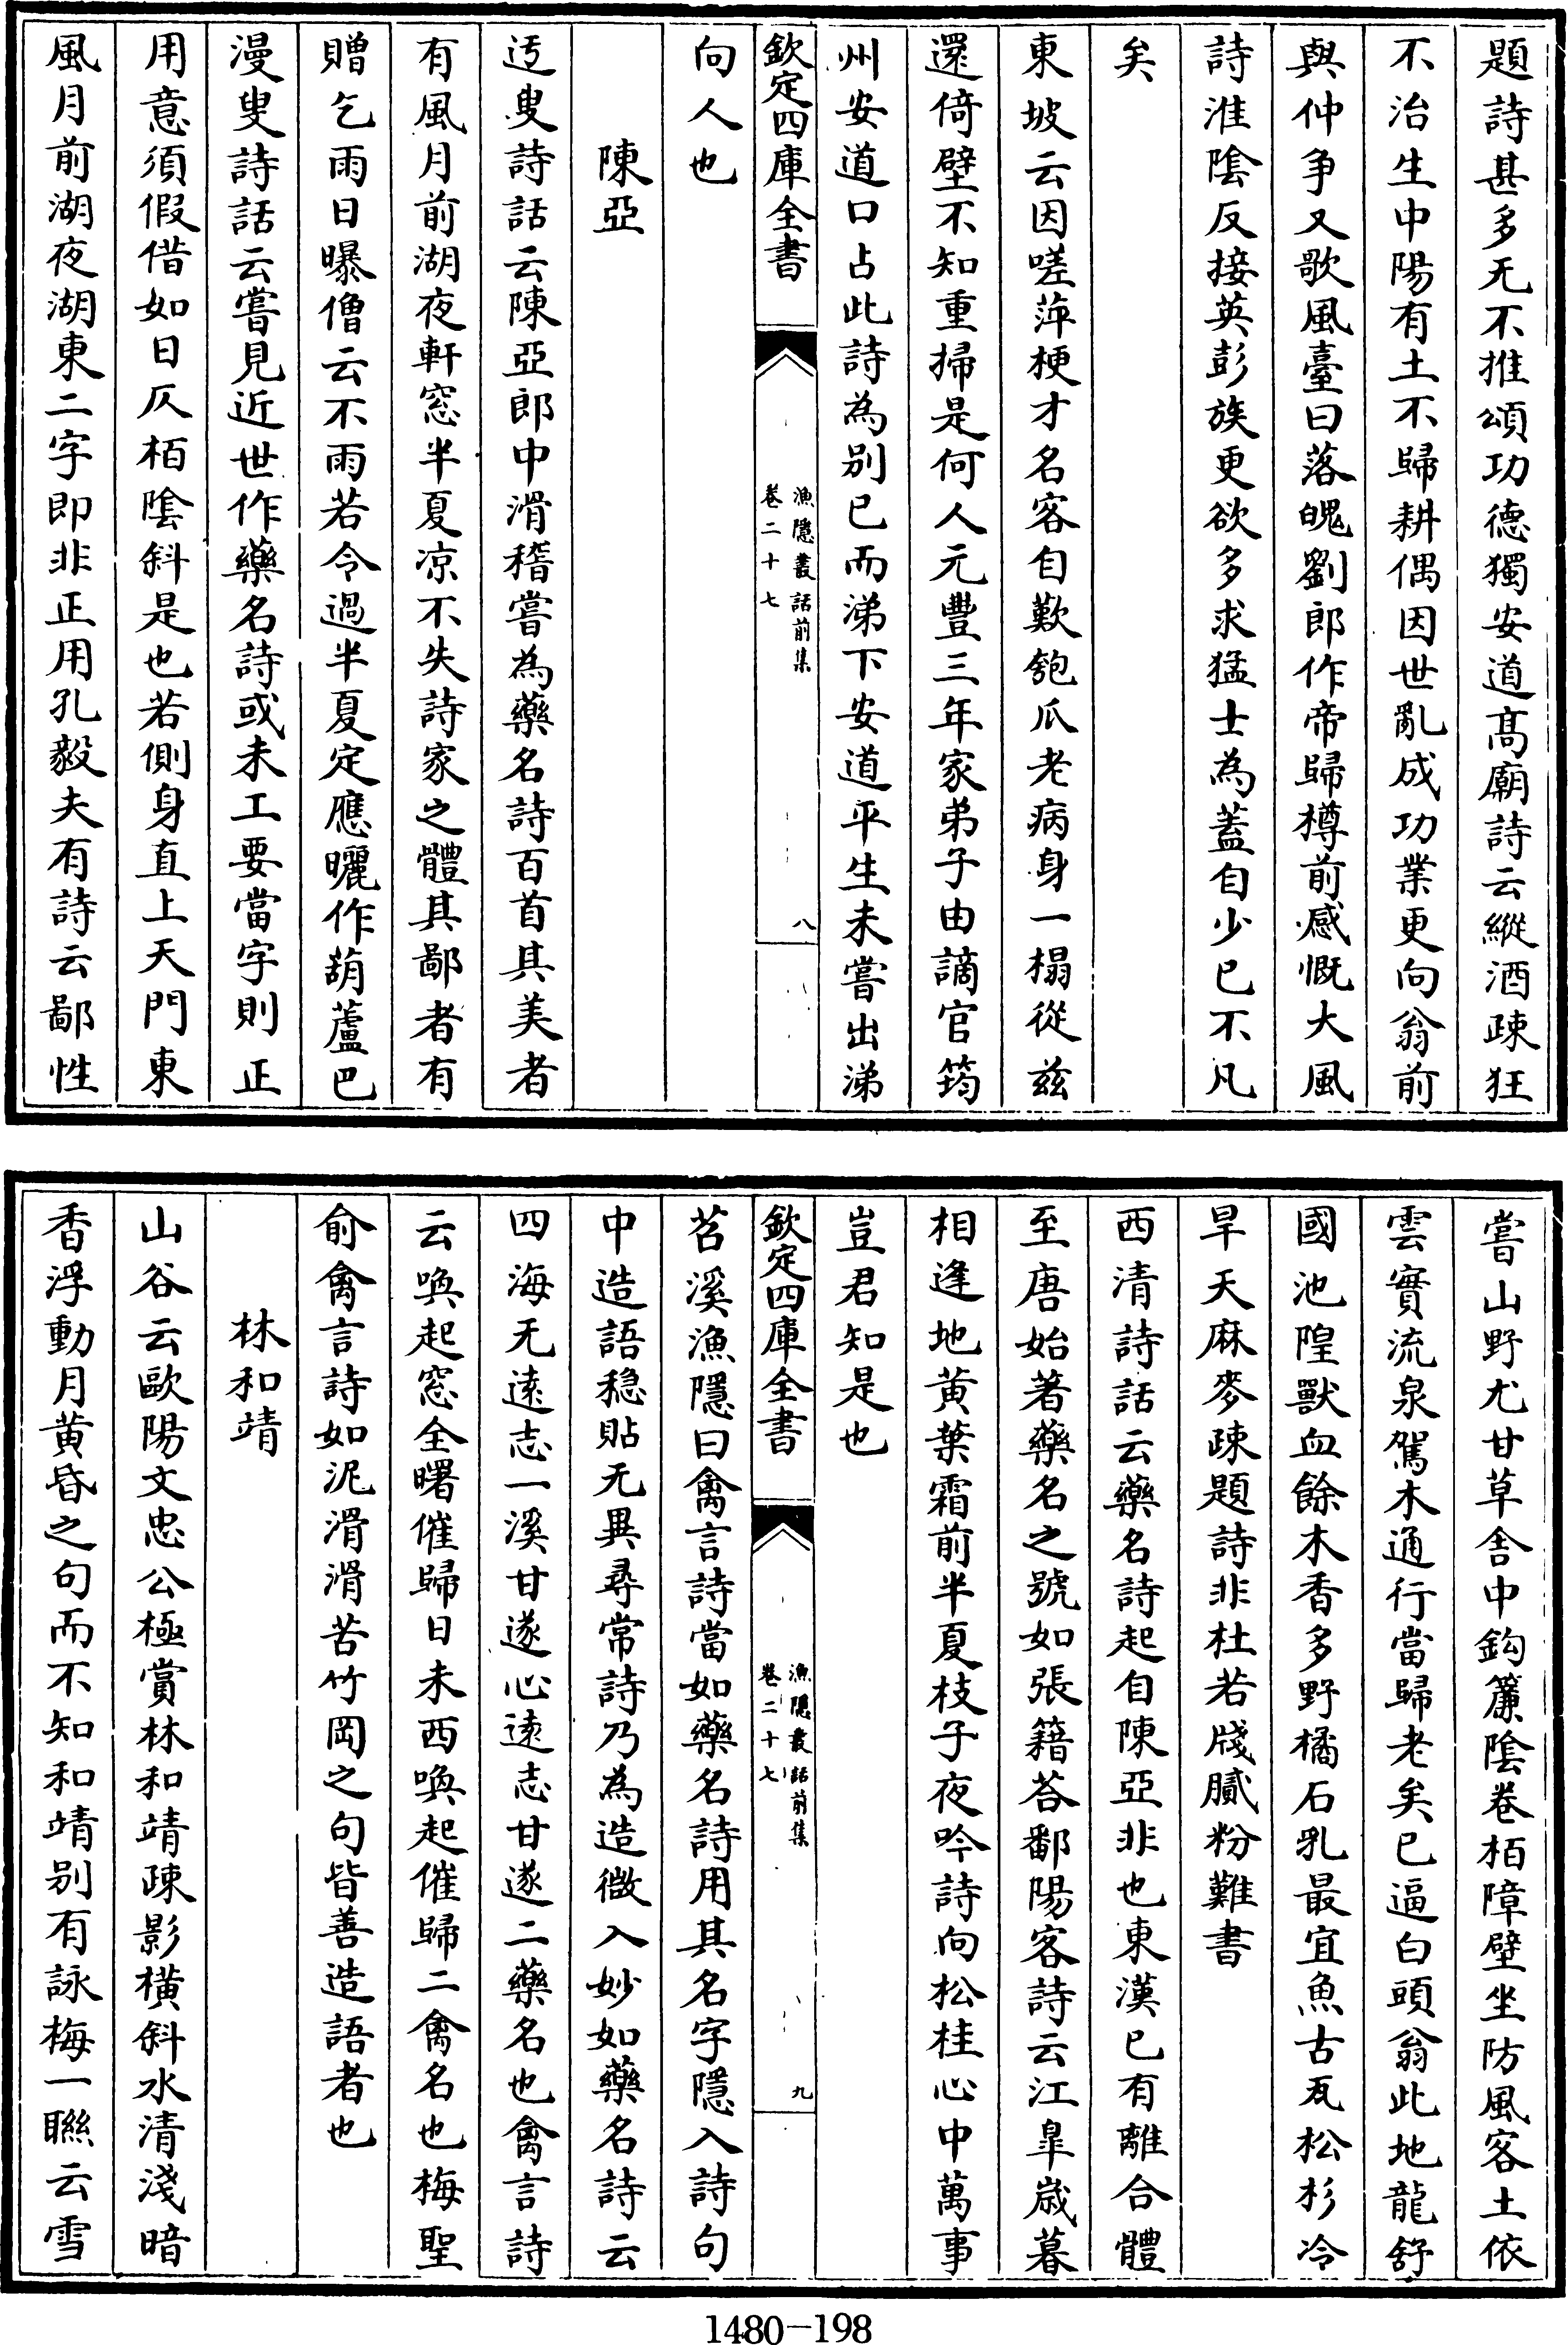 題詩甚多无不推頌功德獨安道髙廟詩云縱酒疎狂
不治生中陽有土不歸耕偶因世亂成功業更向翁前
與仲争又歌風臺曰落魄劉郎作帝歸樽前感慨大風
詩淮陰反接英彭族更欲多求猛士為蓋自少已不凡
矣
東坡云因嗟萍梗才名客自歎匏瓜老病身一榻從兹
還倚壁不知重掃是何人元豐三年家弟子由謫官筠
州安道口占此詩為别已而涕下安道平生未嘗出涕
欽定四庫全書
漁隱叢話前集
卷二十七
八
向人也
陳亞
迃叟詩話云陳亞郎中滑稽嘗為藥名詩百首其美者
有風月前湖夜軒窓半夏凉不失詩家之體其鄙者有
贈乞雨日曝僧云不雨若令過半夏定應曬作葫蘆巴
漫叟詩話云嘗見近世作藥名詩或未工要當字則正
用意須假借如日仄栢陰斜是也若側身直上天門東
風月前湖夜湖東二字即非正用孔毅夫有詩云鄙性
嘗山野尤甘草舍中鈎簾陰卷栢障壁坐防風客土依
雲實流泉駕木通行當歸老矣已逼白頭翁此地龍舒
國池隍獸血餘木香多野橘石乳最宜魚古瓦松杉冷
旱天麻麥疎題詩非杜若牋膩粉難書
西清詩話云藥名詩起自陳亞非也東漢已有離合體
至唐始著藥名之號如張籍荅鄱陽客詩云江臯歲暮
相逢地黄葉霜前半夏枝子夜吟詩向松桂心中萬事
豈君知是也
欽定四庫全書
漁隱叢話前集
卷二十七
九
苕溪漁隱曰禽言詩當如藥名詩用其名字隱入詩句
中造語稳貼无異尋常詩乃為造微入妙如藥名詩云
四海无逺志一溪甘遂心逺志甘遂二藥名也禽言詩
云喚起窓全曙催歸日未西喚起催歸二禽名也梅聖
俞禽言詩如泥滑滑苦竹岡之句皆善造語者也
林和靖
山谷云歐陽文忠公極賞林和靖疎影横斜水清淺暗
香浮動月黄昏之句而不知和靖别有詠梅一聯云雪
1480-198